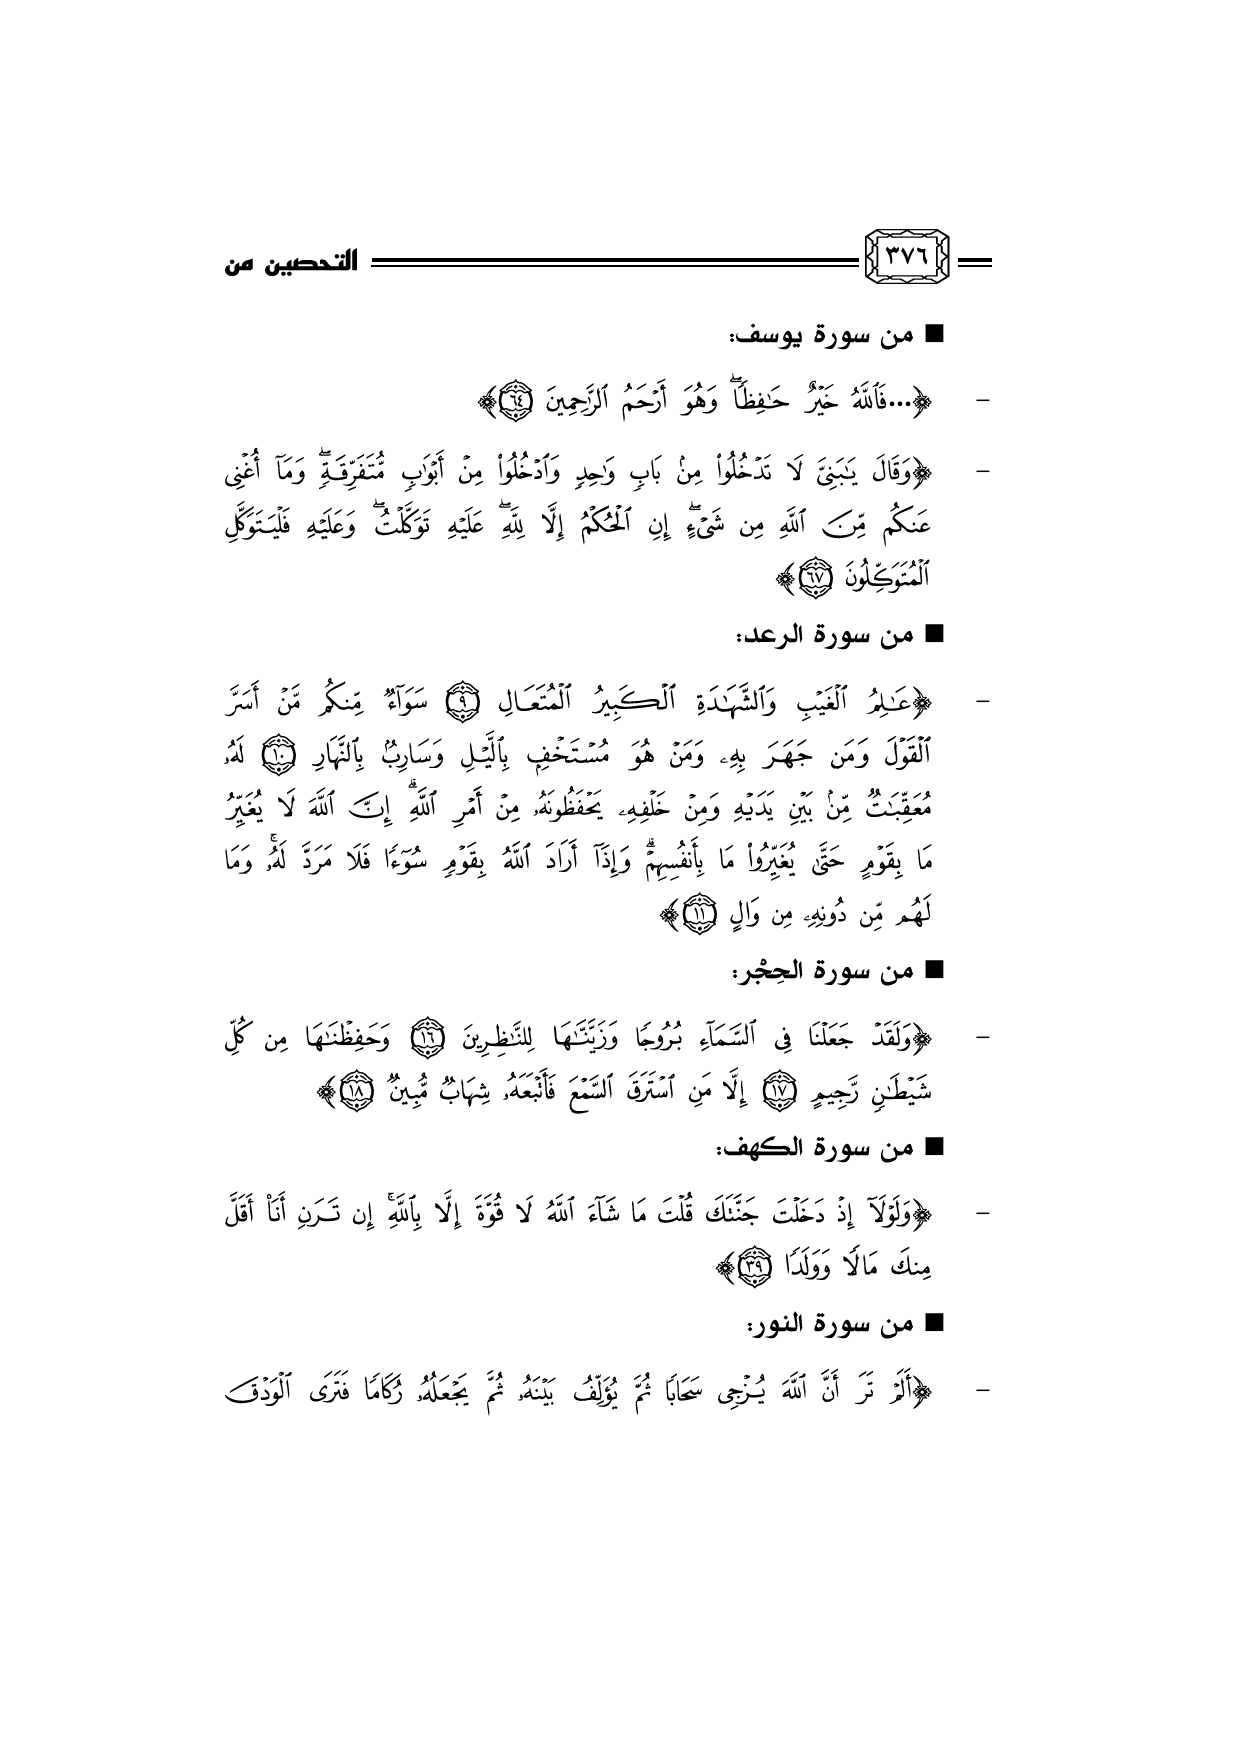 ٣٧٦ التحصين من
■ من سورة يوسف:
- ﴿...فَٱللَّهُ خَيْرٌ حَٰفِظًا ۖ وَهُوَ أَرْحَمُ ٱلرَّٰحِمِينَ ٦٤﴾
- ﴿وَقَالَ يَٰبَنِىَّ لَا تَدْخُلُوا۟ مِنۢ بَابٍ وَٰحِدٍ وَٱدْخُلُوا۟ مِنْ أَبْوَٰبٍ مُّتَفَرِّقَةٍ ۖ وَمَآ أُغْنِى
عَنكُم مِّنَ ٱللَّهِ مِن شَىْءٍ ۖ إِنِ ٱلْحُكْمُ إِلَّا لِلَّهِ ۖ عَلَيْهِ تَوَكَّلْتُ ۖ وَعَلَيْهِ فَلْيَتَوَكَّلِ
ٱلْمُتَوَكِّلُونَ ٦٧﴾
■ من سورة الرعد:
- ﴿عَٰلِمُ ٱلْغَيْبِ وَٱلشَّهَٰدَةِ ٱلْكَبِيرُ ٱلْمُتَعَالِ ٩ سَوَآءٌ مِّنكُم مَّنْ أَسَرَّ
ٱلْقَوْلَ وَمَن جَهَرَ بِهِۦ وَمَنْ هُوَ مُسْتَخْفٍۭ بِٱلَّيْلِ وَسَارِبٌۢ بِٱلنَّهَارِ ١٠ لَهُۥ
مُعَقِّبَٰتٌ مِّنۢ بَيْنِ يَدَيْهِ وَمِنْ خَلْفِهِۦ يَحْفَظُونَهُۥ مِنْ أَمْرِ ٱللَّهِ ۗ إِنَّ ٱللَّهَ لَا يُغَيِّرُ
مَا بِقَوْمٍ حَتَّىٰ يُغَيِّرُوا۟ مَا بِأَنفُسِهِمْ ۗ وَإِذَآ أَرَادَ ٱللَّهُ بِقَوْمٍ سُوٓءًا فَلَا مَرَدَّ لَهُۥ ۚ وَمَا
لَهُم مِّن دُونِهِۦ مِن وَالٍ ١١﴾
■ من سورة الحِجْر:
- ﴿وَلَقَدْ جَعَلْنَا فِى ٱلسَّمَآءِ بُرُوجًا وَزَيَّنَّٰهَا لِلنَّٰظِرِينَ ١٦ وَحَفِظْنَٰهَا مِن كُلِّ
شَيْطَٰنٍ رَّجِيمٍ ١٧ إِلَّا مَنِ ٱسْتَرَقَ ٱلسَّمْعَ فَأَتْبَعَهُۥ شِهَابٌ مُّبِينٌ ١٨﴾
■ من سورة الكهف:
- ﴿وَلَوْلَآ إِذْ دَخَلْتَ جَنَّتَكَ قُلْتَ مَا شَآءَ ٱللَّهُ لَا قُوَّةَ إِلَّا بِٱللَّهِ ۚ إِن تَرَنِ أَنَا۠ أَقَلَّ
مِنكَ مَالًا وَوَلَدًا ٣٩﴾
■ من سورة النور:
- ﴿أَلَمْ تَرَ أَنَّ ٱللَّهَ يُزْجِى سَحَابًا ثُمَّ يُؤَلِّفُ بَيْنَهُۥ ثُمَّ يَجْعَلُهُۥ رُكَامًا فَتَرَى ٱلْوَدْقَ